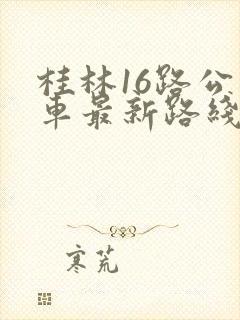 桂林16路公
车最新路线
寒荒